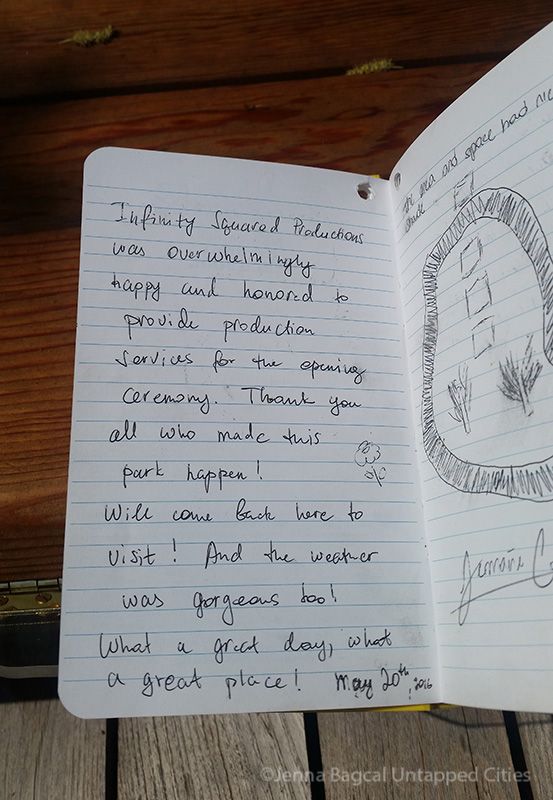 Infinity Squared Productions
was overwhelmingly
happy and honored to
provide production
services for the opening
ceremony. Thank you
all who made this
park happen!
Will come back here to
visit! And the weather
was gorgeous too!
What a great day, what
a great place!
May 20th, 2016
and space had
©Jenna Bagcal Untapped Cities